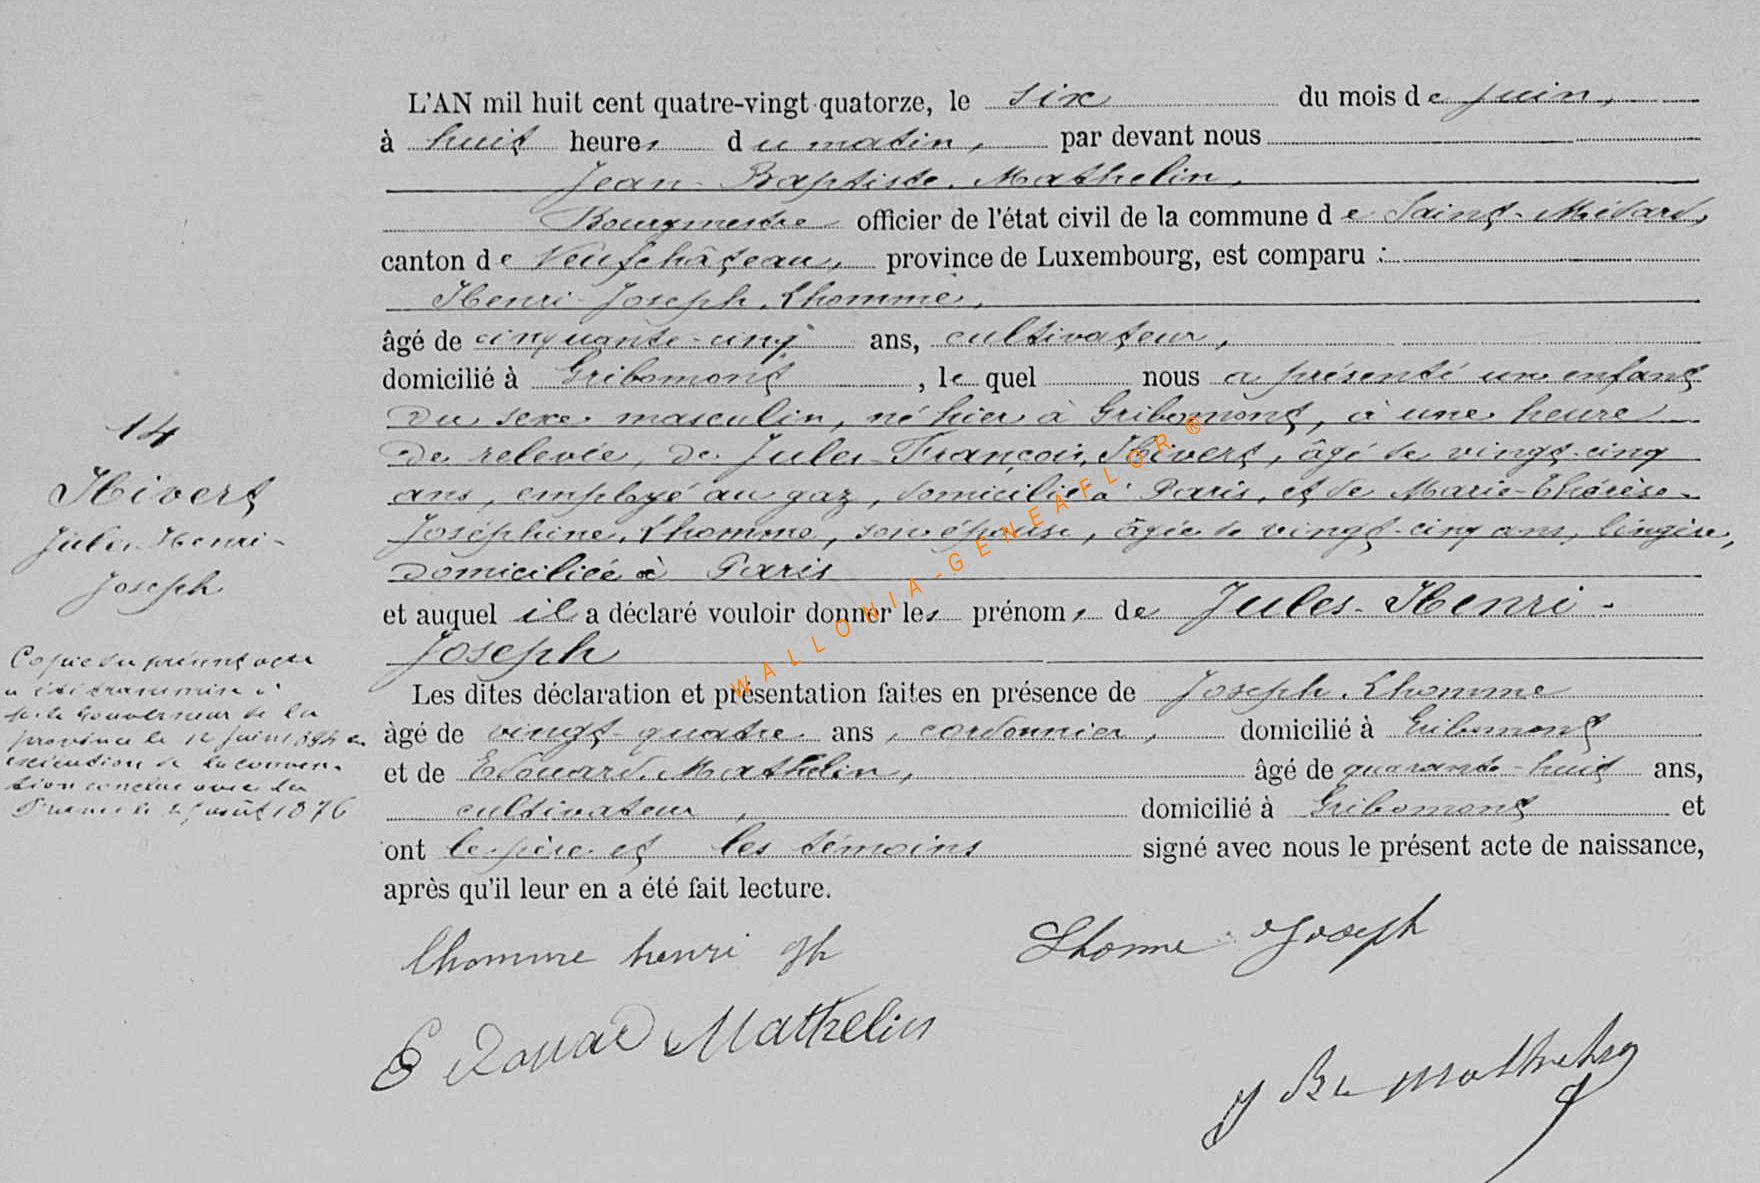 L'AN mil huit cent quatre-vingt quatorze, le six du mois de juin,
à huit heures du matin, par devant nous
Jean-Baptiste Mathelin,
Bourgmestre officier de l'état civil de la commune de Saint-Médard,
canton de Neufchâteau, province de Luxembourg, est comparu :
Henri-Joseph Lhomme,
âgé de cinquante-cinq ans, cultivateur,
domicilié à Gribomont, lequel nous a présenté un enfant
du sexe masculin, né hier à Gribomont, à une heure
de relevée, de Jules-François Hivert, âgé de vingt-cinq
ans, employé au gaz, domicilié à Paris, et de Marie-Thérèse-
Joséphine Lhomme, son épouse, âgée de vingt-cinq ans, lingère,
domiciliée à Paris
et auquel il a déclaré vouloir donner les prénoms de Jules-Henri-
Joseph
Les dites déclaration et présentation faites en présence de Joseph Lhomme
âgé de vingt-quatre ans, cordonnier, domicilié à Gribomont
et de Edouard Mathelin, âgé de quarante-huit ans,
cultivateur, domicilié à Gribomont et
ont le père et les témoins signé avec nous le présent acte de naissance,
après qu'il leur en a été fait lecture.
lhomme henri jph
Lhomme Joseph
Edouard Mathelin
J Bte Mathelin
14
Hivert
Jules-Henri-
Joseph
Copie du présent acte
a été transmise à
Mr le Gouverneur de la
province le 12 juin 1894 en
exécution de la conven-
tion conclue avec la
France le 25 août 1876
WALLONIA-GENEAFLOR®